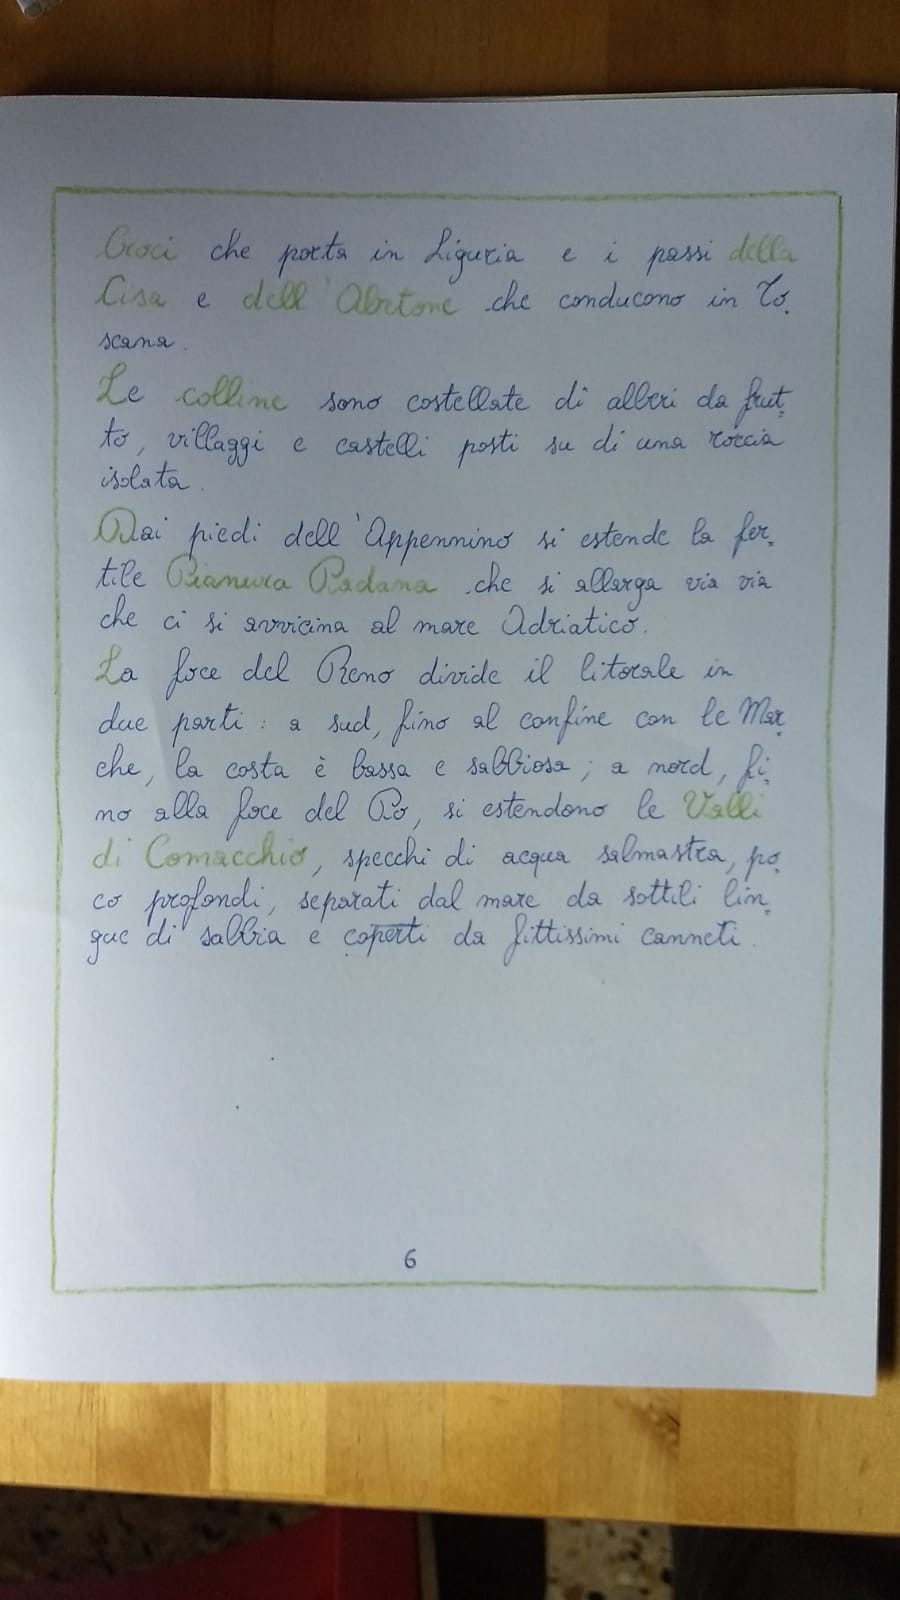 Croci che porta in Liguria e i passi della
Cisa e dell'Abetone che conducono in To_
scana.
Le colline sono costellate di alberi da frut_
to, villaggi e castelli posti su di una roccia
isolata.
Dai piedi dell'Appennino si estende la fer_
tile Pianura Padana che si allarga via via
che ci si avvicina al mare Adriatico.
La foce del Reno divide il litorale in
due parti: a sud, fino al confine con le Mar_
che, la costa è bassa e sabbiosa; a nord, fi_
no alla foce del Po, si estendono le Valli
di Comacchio, specchi di acqua salmastra, po_
co profondi, separati dal mare da sottili lin_
gue di sabbia e coperti da fittissimi canneti.
6